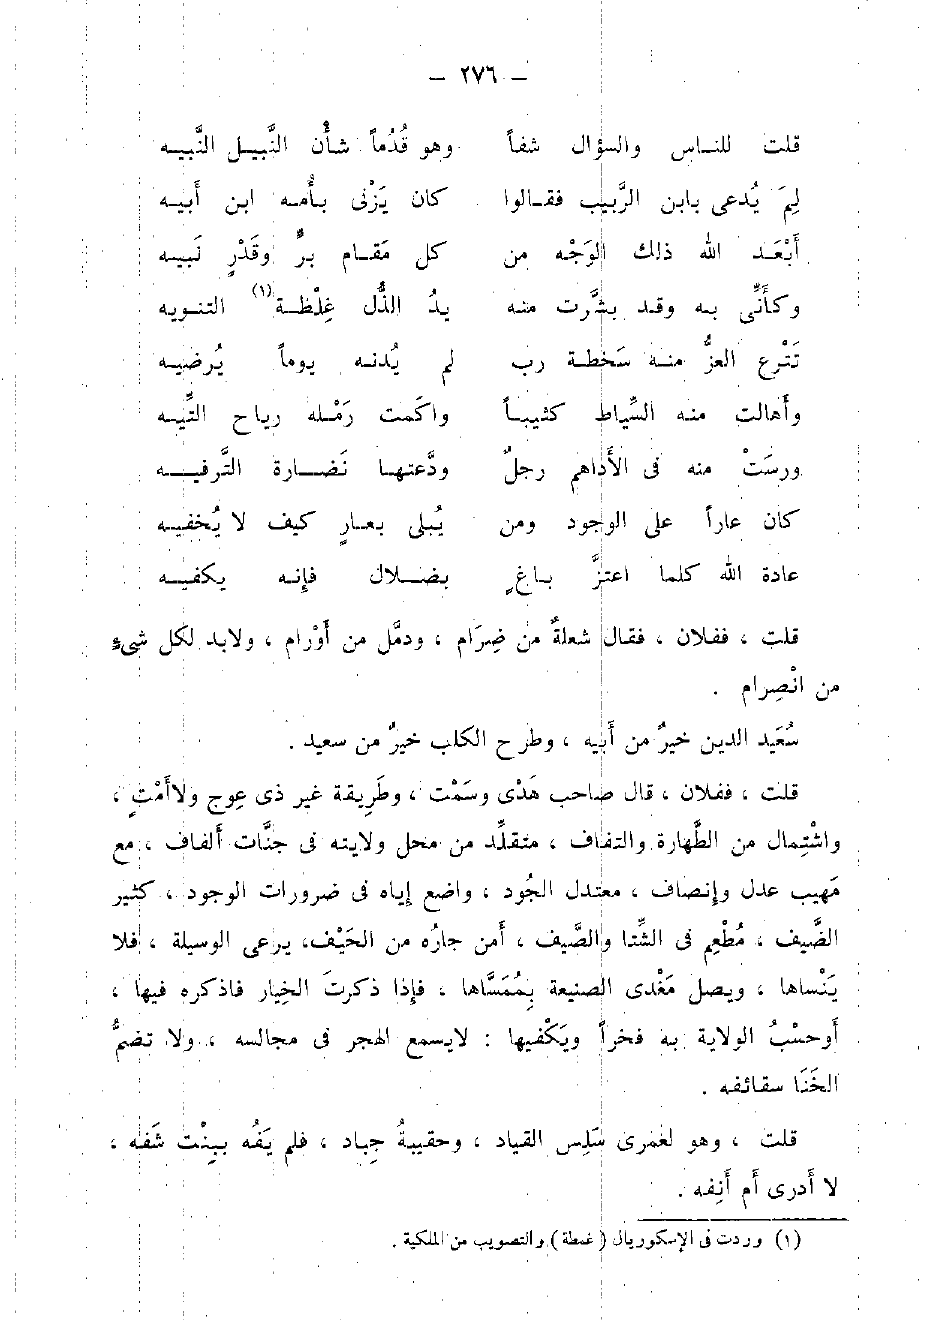 — ٢٧٦ —
قلت للنـاس والسؤال شفاً وهو قُدُماً شأن النَّبيـل النَّبيه
لِمَ يُدعى بابن الرَّبيب فقـالوا كان يَزْنى بـأُمـه ابن أبيـه
أبْعَـد الله ذلك الوَجْه من كل مَقـام برٍّ وقَدْرٍ نَبيـه
وكأنِّى بـه وقـد بشَّرت منـه يدُ الذُّل غِلْظـة(١) التنـويه
تَتْرع العزُّ منـه سَخطـة رب لم يُدنـه يوماً يُرضيـه
وأهالت منـه السِّياط كثيبـاً واكَمت رَمْـله رياح التِّيـه
ورسَتْ منه فى الأَداهم رجلٌ ودَّعتهـا نَضـارة التَّرفيـه
كان عاراً على الوجود ومن يُبلى بعـارٍ كيف لا يُخفيـه
عادة الله كلما اعتزَّ بـاغٍ بضـلال فإنـه يكفيـه
قلت ، ففلان ، فقال شعلةٌ من ضِرَام ، ودمَّل من أوْرام ، ولابد لكل شىءٍ
من انْصِرام .
سُعَيد الدين خيرٌ من أبيه ، وطرح الكلب خيرٌ من سعيد .
قلت ، ففلان ، قال صاحب هَدْى وسَمْت ، وطَرِيقة غير ذى عِوج ولاأمْتٍ ،
واشْتِمال من الطَّهارة والتفاف ، متقلِّد من محل ولايته فى جنَّات ألفاف ، مع
مَهيب عدل وإنصاف ، معتدل الجُود ، واضع إياه فى ضرورات الوجود ، كثير
الضَّيف ، مُطْعِم فى الشِّتا والصَّيف ، أمن جارُه من الحَيْف، يرعى الوسيلة ، فلا
يَنْساها ، ويصل مَغْدى الصنيعة بِمُمَسَّاها ، فإذا ذكرتَ الخِيار فاذكره فيها ،
أوحسْبُ الولاية به فخراً ويَكْفيها : لايسمع الهجر فى مجالسه ، ولا تضمُّ
الخَنَا سقائفه .
قلت ، وهو لعَمرى سَلِس القياد ، وحقيبةُ جِياد ، فلم يَفُه ببِنْت شَفه ،
لا أدرى أم أنِفه .
(١) وردت فى الإسكوريال (غبطة) والتصويب من الملكية .